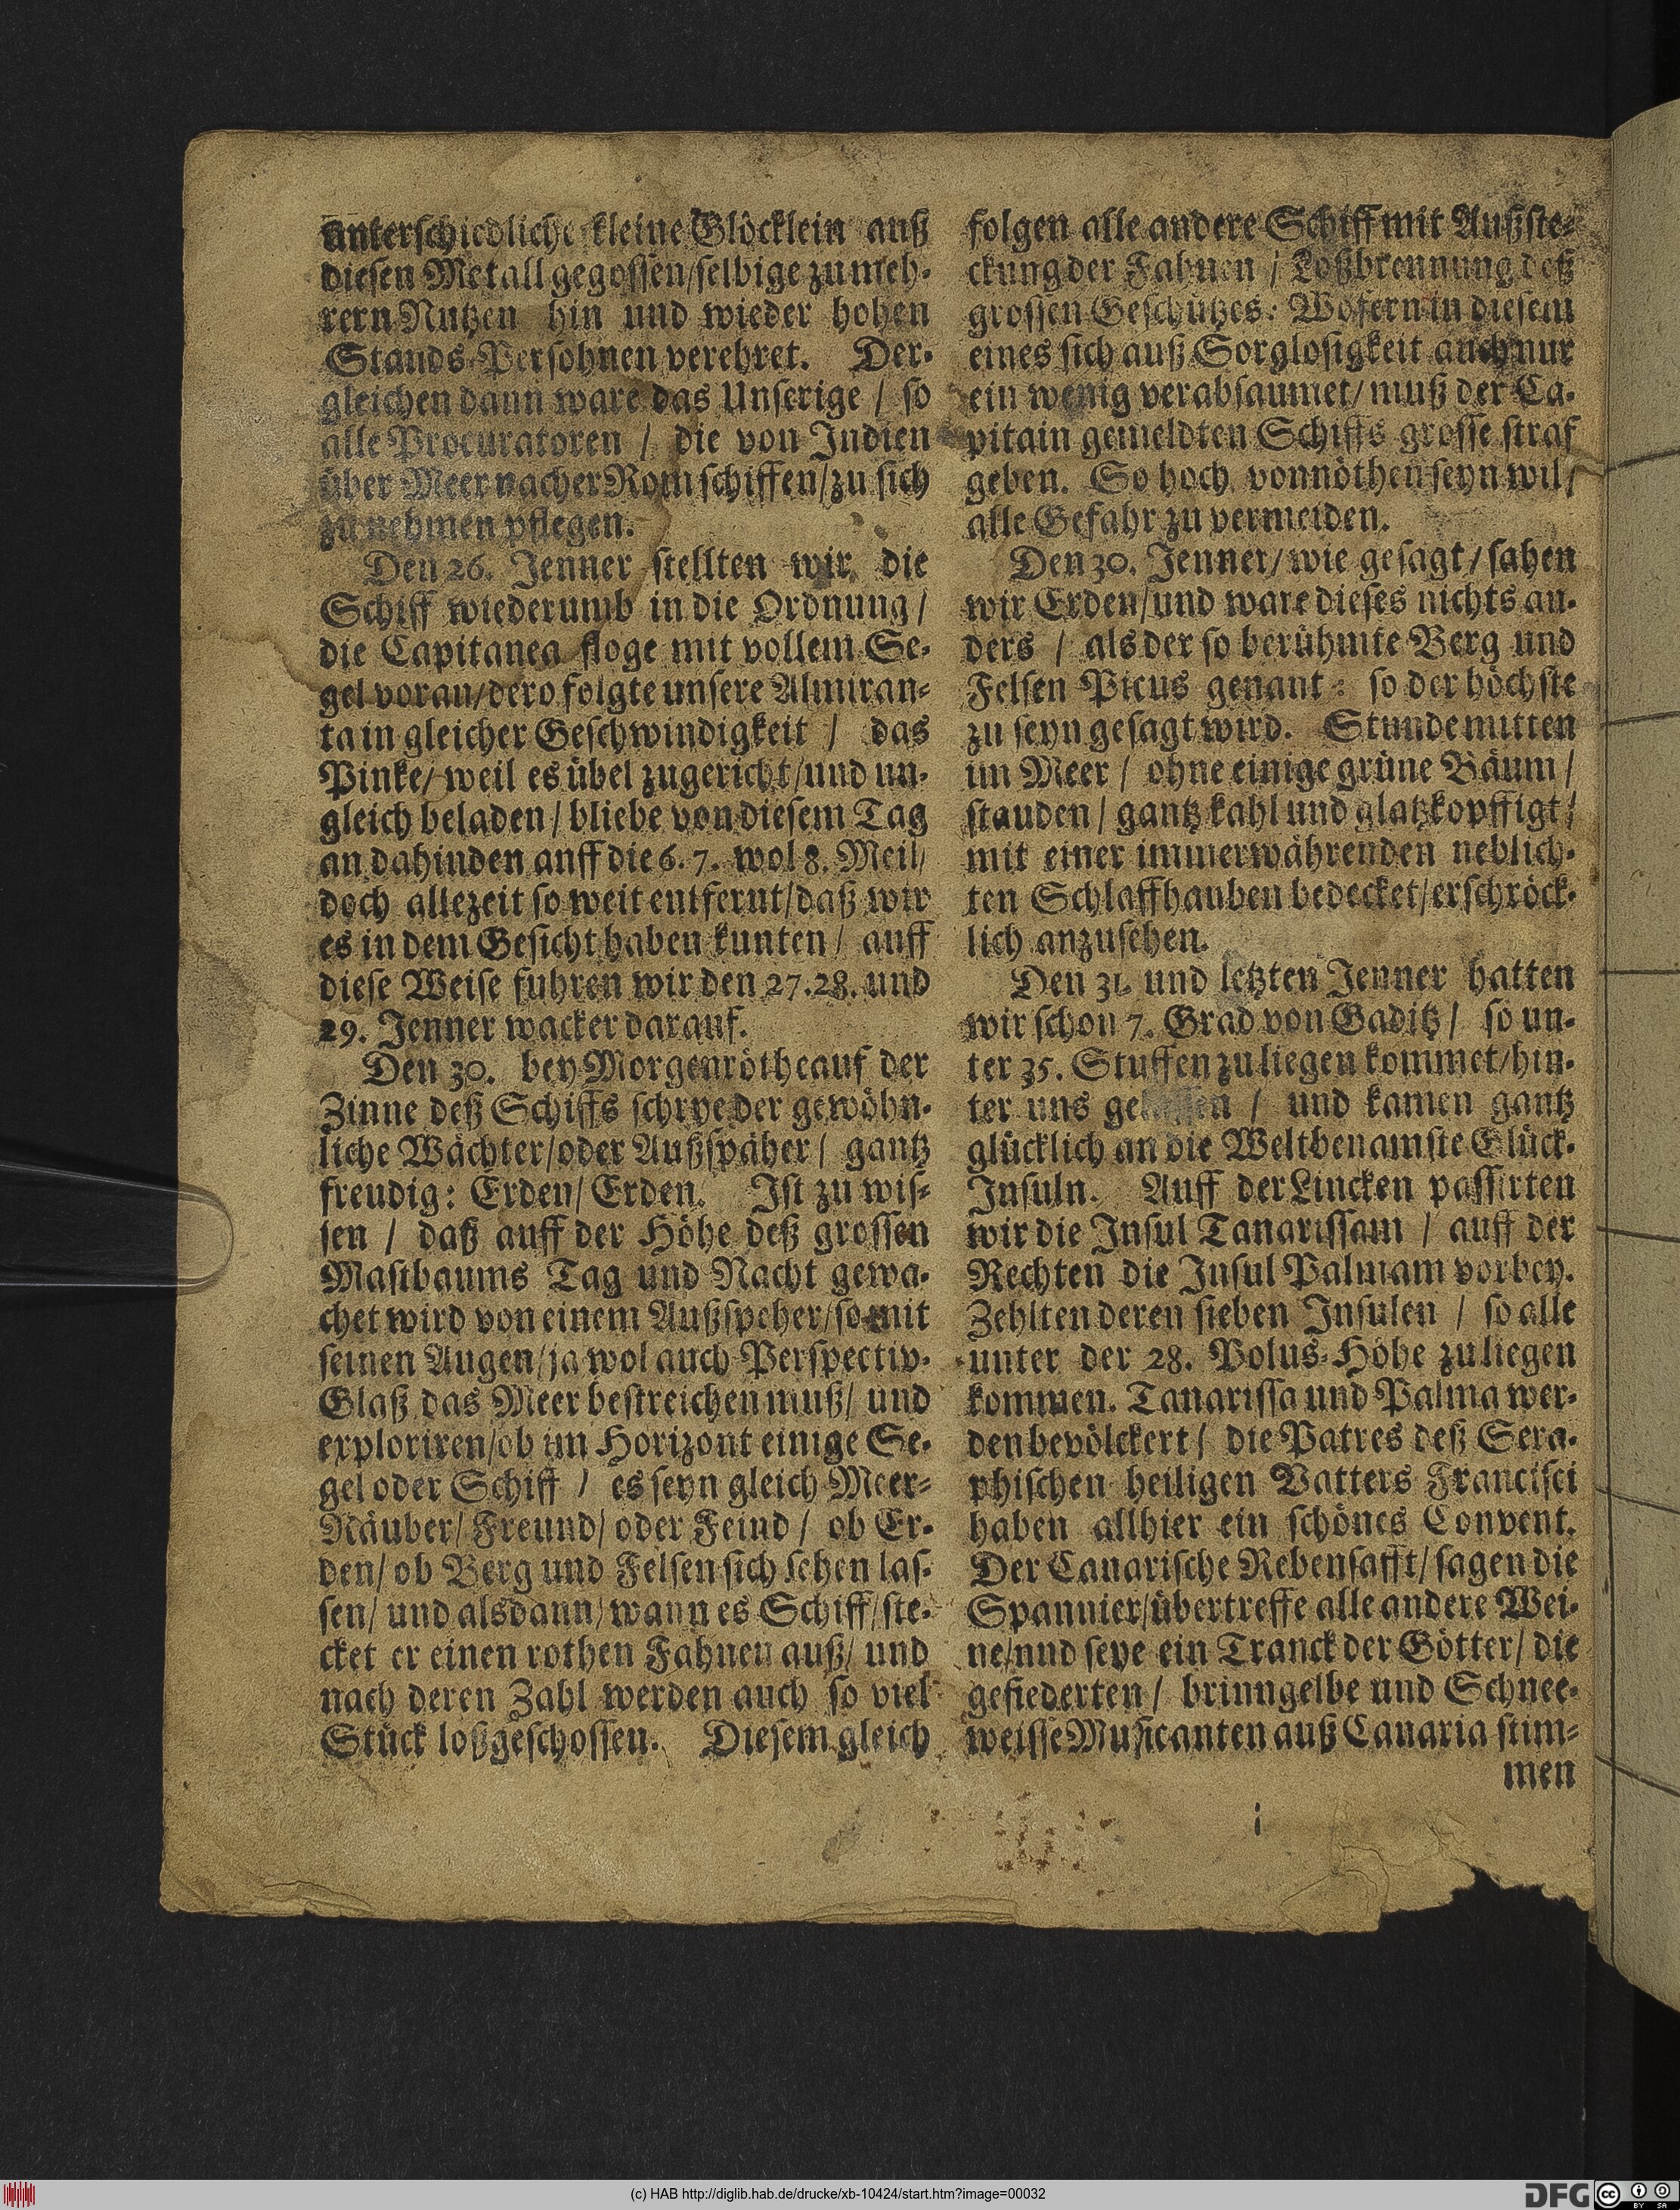 unterschiedliche kleine Glöcklein auß
diesen Metall gegossen/selbige zu meh-
rern Nutzen hin und wieder hohen
Stands-Persohnen verehret. Der-
gleichen dann ware das Unserige / so
alle Procuratoren / die von Indien
über Meer nacher Rom schiffen/zu sich
zu nehmen pflegen.
Den 26. Jenner stellten wir die
Schiff wiederumb in die Ordnung/
die Capitanea floge mit vollem Se-
gel voran/dero folgte unsere Almiran-
ta in gleicher Geschwindigkeit / das
Pinke/ weil es übel zugericht/und un-
gleich beladen/ bliebe von diesem Tag
an dahinden auff die 6. 7. wol 8. Meil/
doch allezeit so weit entfernt/daß wir
es in dem Gesicht haben kunten/ auff
diese Weise fuhren wir den 27.28. und
29. Jenner wacker darauf.
Den 30. bey Morgenröthe auf der
Zinne deß Schiffs schrye der gewöhn-
liche Wächter/oder Außspäher/ gantz
freudig: Erden/ Erden. Ist zu wis-
sen / daß auff der Höhe deß grossen
Mastbaums Tag und Nacht gewa-
chet wird von einem Außspeher/so mit
seinen Augen/ja wol auch Perspectiv-
Glaß das Meer bestreichen muß/ und
exploriren/ob im Horizont einige Se-
gel oder Schiff / es seyn gleich Meer-
Räuber/ Freund/ oder Feind / ob Er-
den/ ob Berg und Felsen sich sehen las-
sen/ und alsdann/ wann es Schiff/ ste-
cket er einen rothen Fahnen auß/ und
nach deren Zahl werden auch so viel
Stück loßgeschossen. Diesem gleich
folgen alle andere Schiff mit Außste-
ckung der Fahnen / Loßbrennung deß
grossen Geschützes: Wofern in diesem
eines sich auß Sorglosigkeit auch nur
ein wenig verabsaumet/ muß der Ca-
pitain gemeldten Schiffs grosse straf
geben. So hoch vonnöthen seyn wil/
alle Gefahr zu vermeiden.
Den 30. Jenner/ wie gesagt/ sahen
wir Erden/und ware dieses nichts an-
ders / als der so berühmte Berg und
Felsen Picus genant: so der höchste
zu seyn gesagt wird. Stunde mitten
im Meer / ohne einige grüne Bäum/
stauden/ gantz kahl und glatzkopffigt/
mit einer immerwährenden neblich-
ten Schlaffhauben bedecket/erschröck-
lich anzusehen.
Den 31. und letzten Jenner hatten
wir schon 7. Grad von Gaditz/ so un-
ter 35. Stuffen zu liegen kommet/hin-
ter uns / und kamen gantz
glücklich an die Weltbenamste Glück-
Insuln. Auff der Lincken passirten
wir die Insul Tanarissam / auff der
Rechten die Insul Palmam vorbey.
Zehlten deren sieben Insulen / so alle
unter der 28. Polus-Höhe zu liegen
kommen. Tanarissa und Palma wer-
den bevölckert/ die Patres deß Sera-
phischen heiligen Vatters Francisci
haben allhier ein schönes Convent.
Der Canarische Rebensafft/ sagen die
Spannier/übertreffe alle andere Wei-
ne/nnd seye ein Tranck der Götter/ die
gefiederten/ brinngelbe und Schnee-
weisse Musicanten auß Canaria stim-
men
i
(c) HAB http://diglib.hab.de/drucke/xb-10424/start.htm?image=00032
DFG
cc BY SA